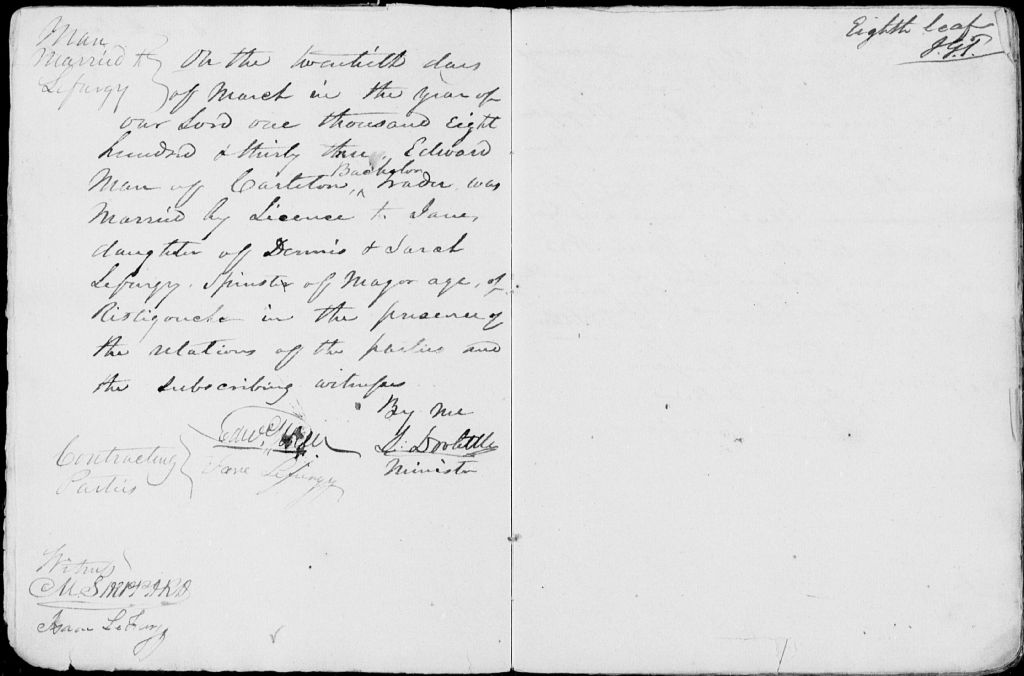 Man
Married to
Lefurgy
On the twentieth day
of March in the year of
our Lord one thousand Eight
hundred & thirty three, Edward
Man of Carleton, Bachelor Trader was
Married by Licence to Jane,
daughter of Dennis & Sarah
Lefurgy. Spinster of Major age, of
Ristigouche in the presence of
the relations of the parties and
the subscribing witnesses
By me
Contracting
Parties
Edwd Man
Jane Lefurgy
Minister
Witness
Isaac LeFurgy
Eighth leaf
J.G.T.